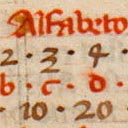 Alfabeto
2 · 3 · 4 ·
b · c · d ·
· 10 · 20 ·